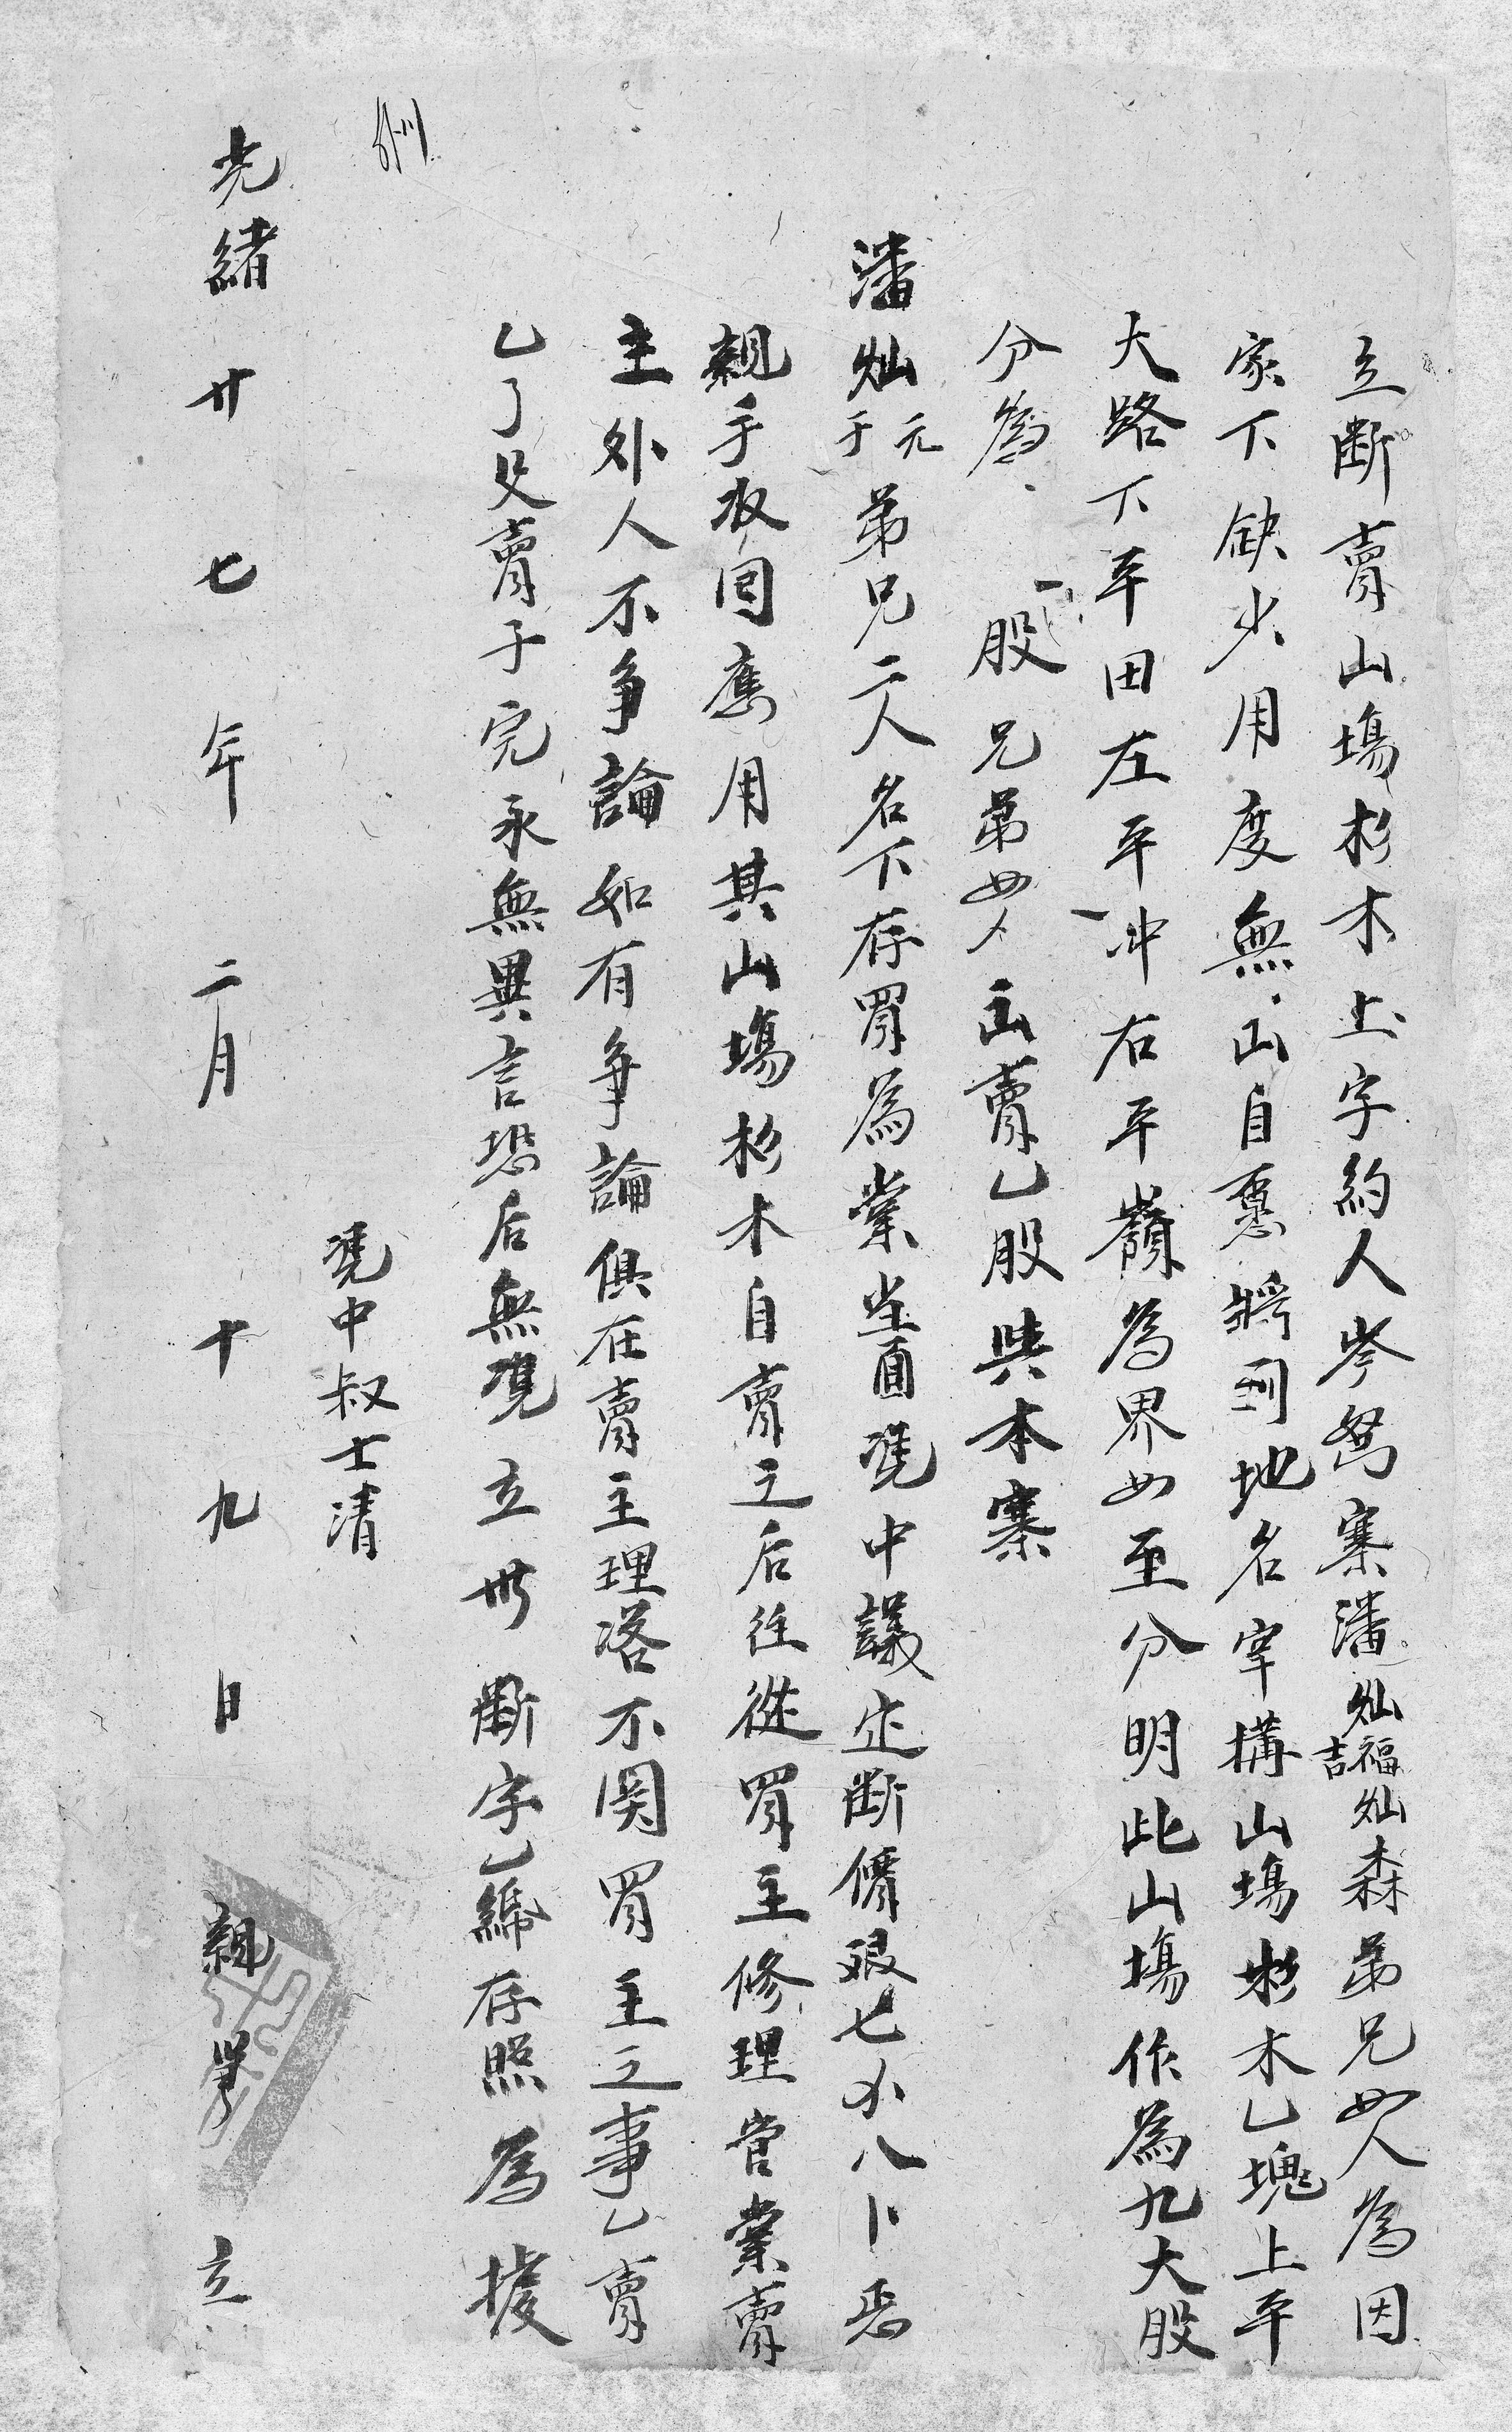 立断賣山塲杉木土字約人岑努寨潘灿福吉灿森弟兄四人為因
家下缺少用度無山自愿將到地名宰構山塲杉木乙塊上平
大路下平田左平冲右平嶺為界四至分明此山塲作為九大股
分為一股兄弟四人出賣乙股與本寨
潘灿元于弟兄二人名下存買為業当面凭中議定断價艮七八卜悉
親手收囘應用其山塲杉木自賣之后往從買主修理管業賣
主外人不争論如有争論俱在賣主理落不関買主之事乙賣
乙了父賣子完永無異言恐后無凭立此断字乙紙存照為據
凭中叔士清
光緒廿七年二月十九日親筆立